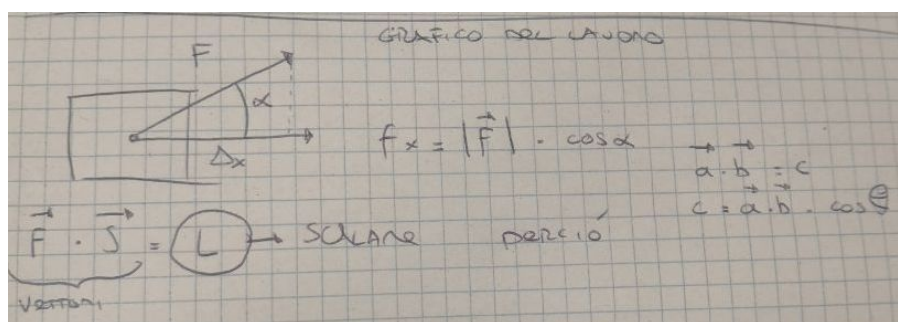 GRAFICO DEL LAVORO
F
α
Δx
fx = |F⃗| · cosα
a⃗ · b⃗ = c
c = a⃗ · b⃗ · cos θ
F⃗ · S⃗ = L → SCALARE PERCIÓ
VETTORI